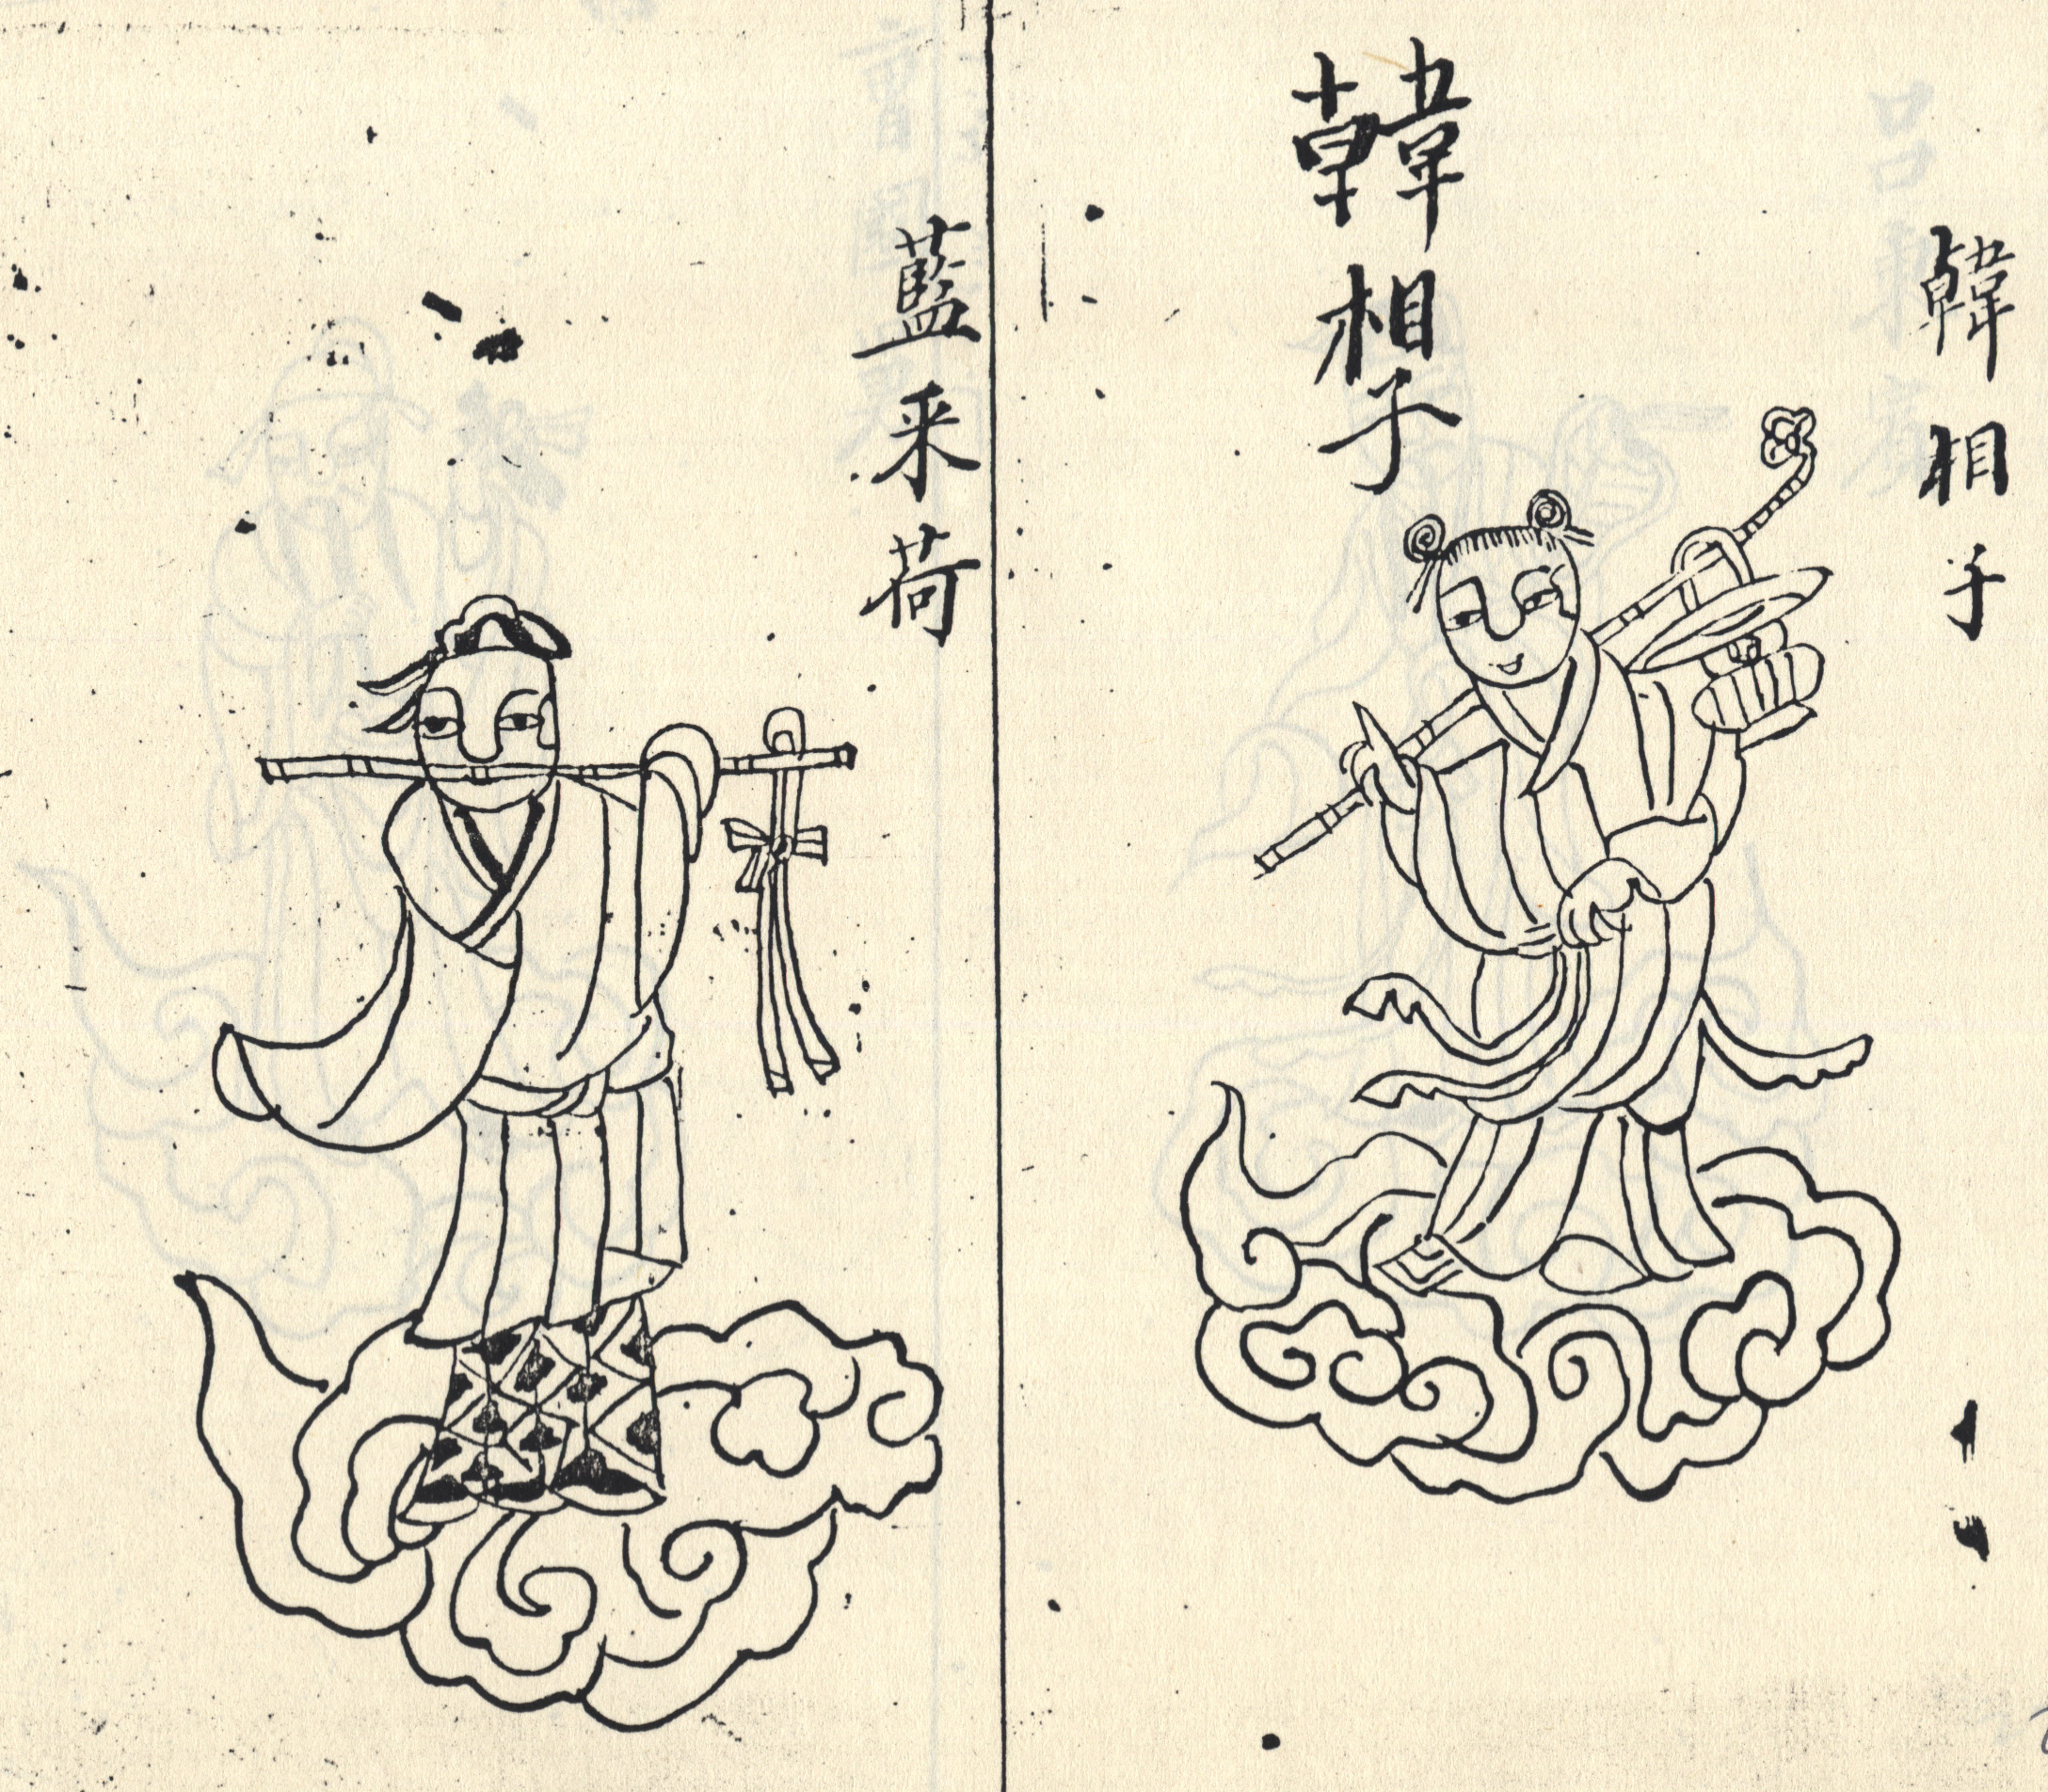 韓相子
韓相子
藍采荷